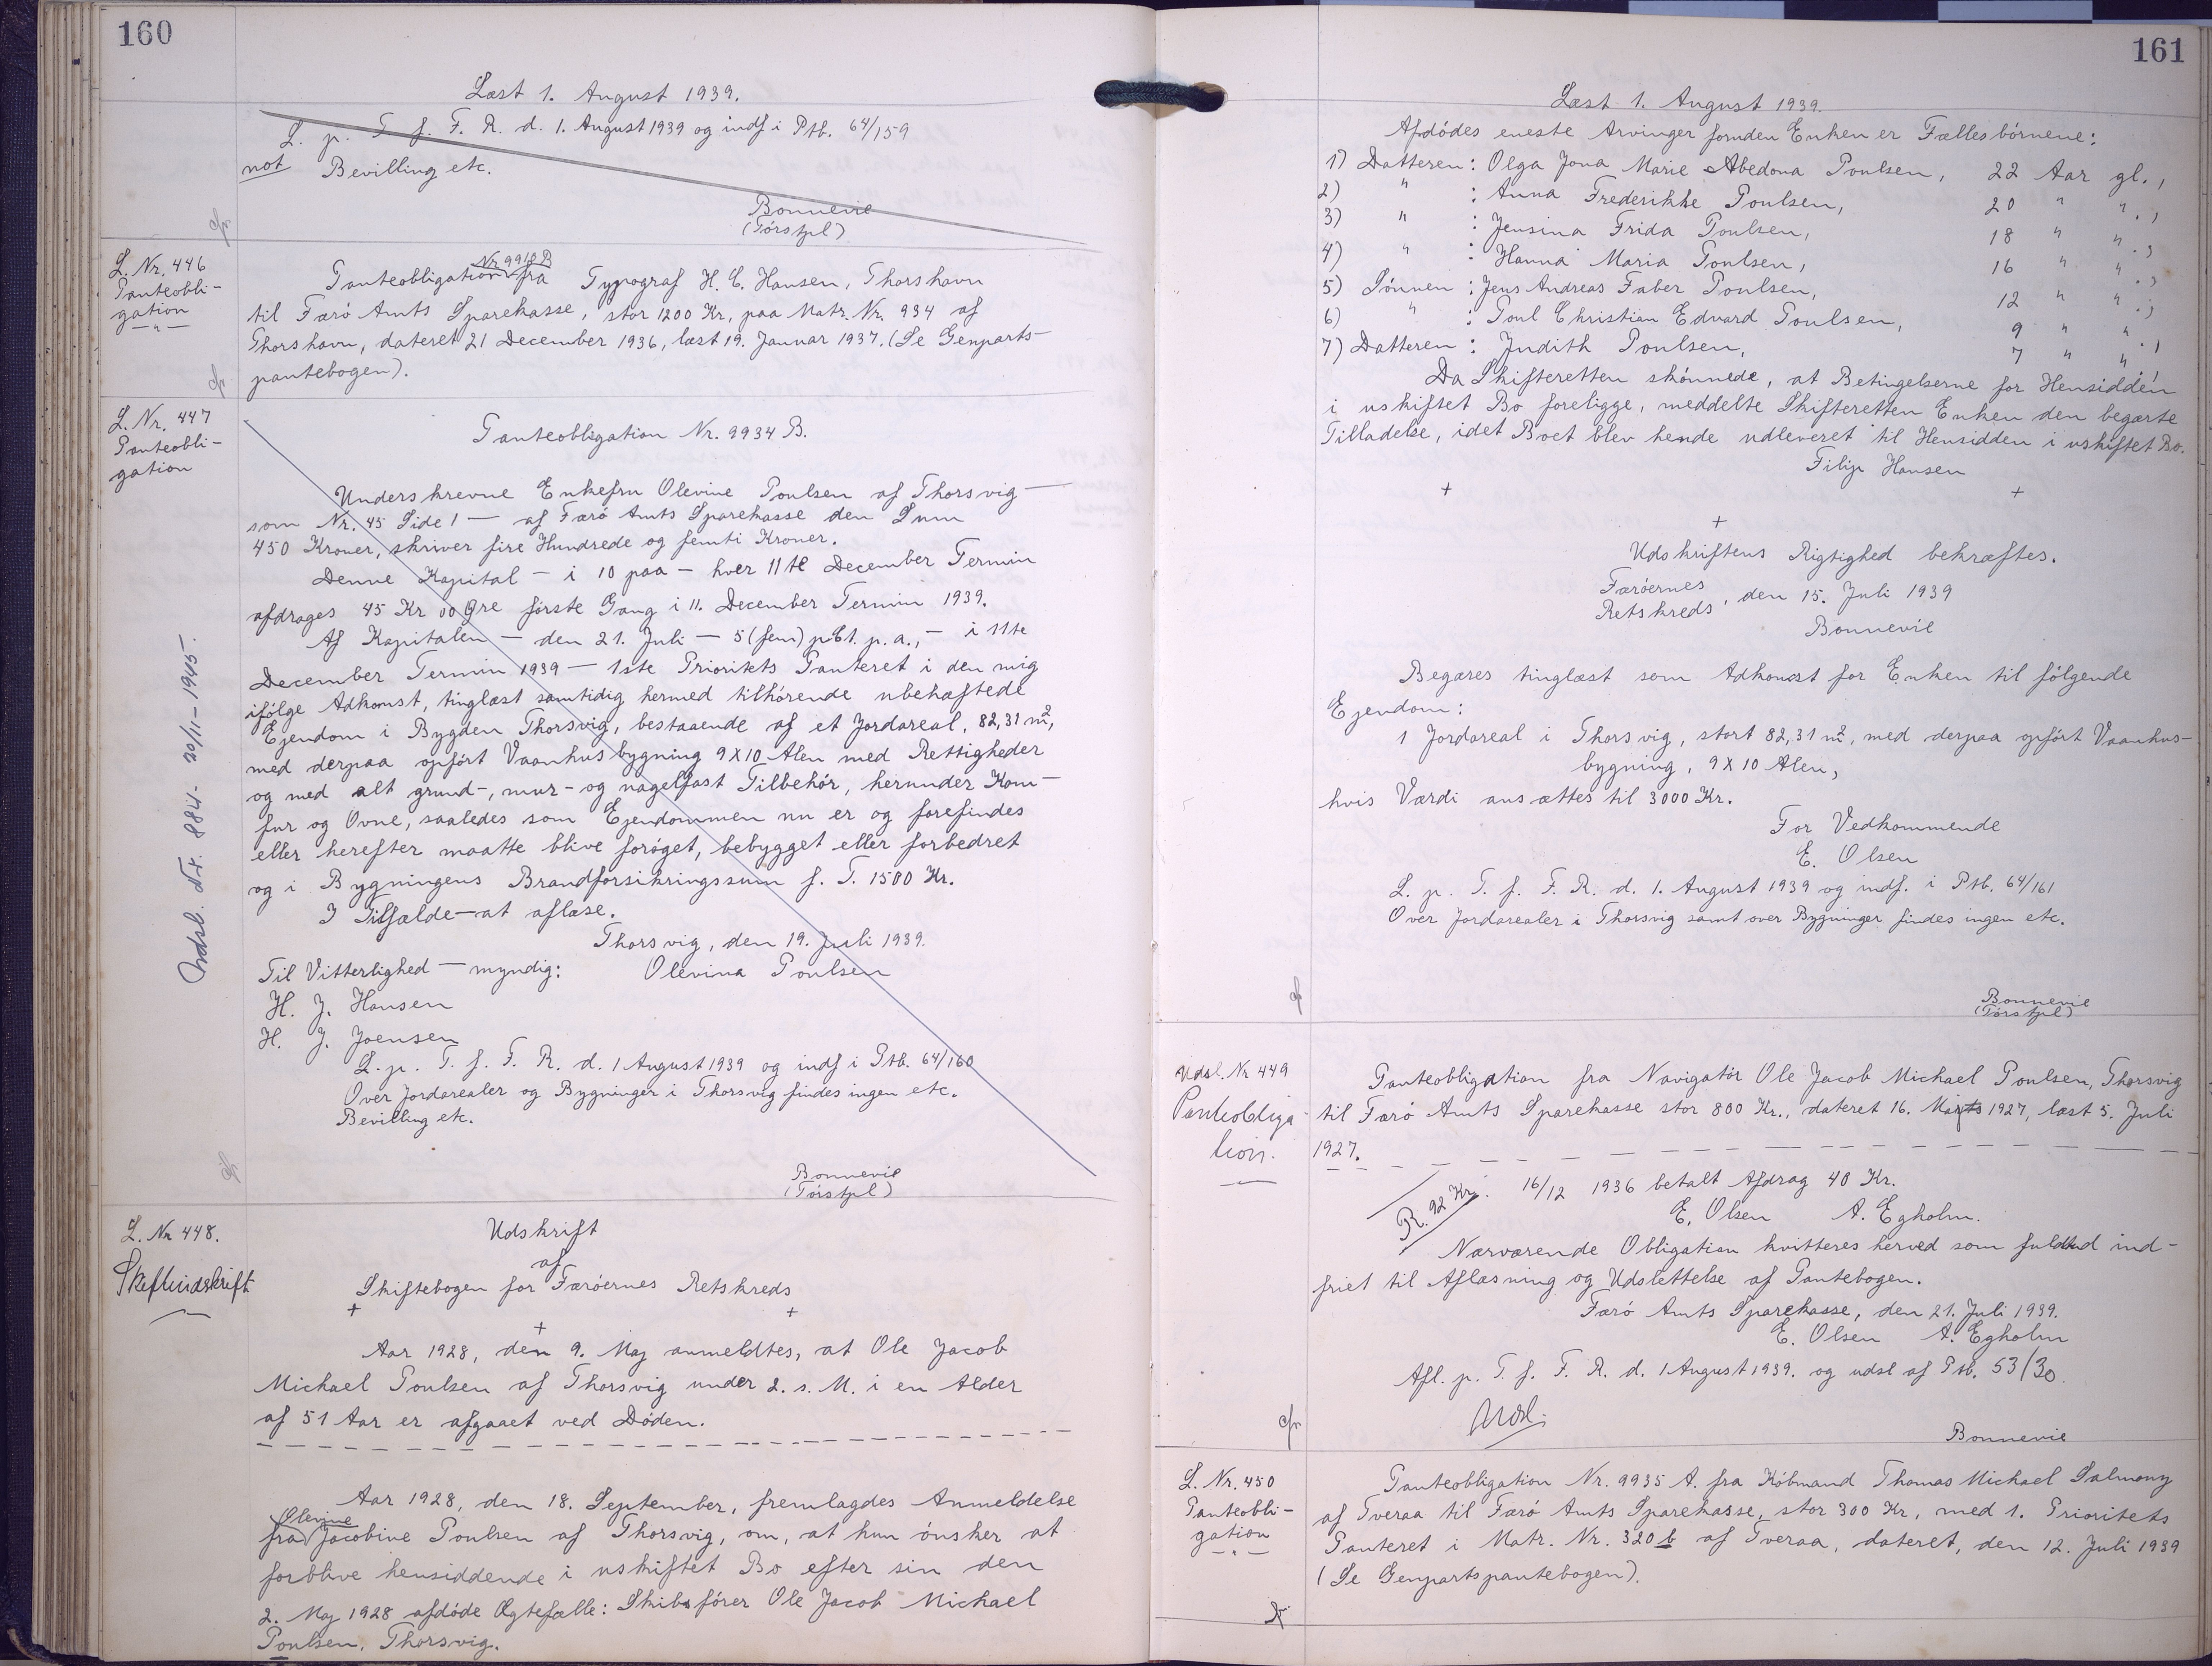 160
Læst 1. August 1939.
L. p. T. f. F. R. d. 1. August 1939 og indf i Ptb. 64/159
not Bevilling etc.
Bonnevie
(Tórstpl)
L. Nr. 446
Panteobli-
gation
Nr 9918 B
Panteobligation fra Typograf H. C. Hansen, Thorshavn
til Færó Amts Sparekasse, stor 1200 Kr, paa Matr. Nr. 934 af
Thorshavn, dateret 21 December 1936, læst 19. Januar 1937. (Se Genparts-
pantebogen).
L. Nr. 447
Panteobli-
gation
Panteobligation Nr. 9934 B.
Underskrevne Enkefru Olevine Poulsen af Thorsvig —
som Nr. 45 Side 1 — af Færó Amts Sparekasse den Sum
450 Kroner, skriver fire Hundrede og femti Kroner.
Denne Kapital — i 10 paa — hver 11te December Termin
afdrages 45 Kr 00 Øre fórste Gang i 11. December Termin 1939.
Af Kapitalen — den 21. Juli — 5 (fem) pCt. p. a., — i 11te
December Termin 1939 — 1ste Prioritets Panteret i den mig
ifólge Adkomst, tinglæst samtidig hermed tilhórende ubehæftede
Ejendom i Bygden Thorsvig, bestaaende af et Jordareal, 82,31 m²,
med derpaa opfórt Vaanhusbygning 9 X 10 Alen med Rettigheder
og med alt grund-, mur- og nagelfast Tilbehór, herunder Kom-
fur og Ovne, saaledes som Ejendommen nu er og forefindes
eller herefter maatte blive foróget, bebygget eller forbedret
og i Bygningens Brandforsikringssum f. T. 1500 Kr.
I Tilfælde — at aflæse.
Thorsvig, den 19. Juli 1939.
Til Vitterlighed — myndig: Olevina Poulsen
H. J. Hansen
H. J. Joensen
L. p. T. f. F. R. d. 1 August 1939 og indf i Ptb. 64/160
Over Jordarealer og Bygninger i Thorsvig findes ingen etc.
Bevilling etc.
Bonnevie
(Tórstpl)
Udsl. Nr. 884 - 20/11 - 1945.
L. Nr 448.
Skifteudskrift
Udskrift
af
Skiftebogen for Færóernes Retskreds
Aar 1928, den 9. Maj anmeldtes, at Ole Jacob
Michael Poulsen af Thorsvig under 2. s. M. i en Alder
af 51 Aar er afgaaet ved Dóden.
Aar 1928, den 18. September, fremlagdes Anmeldelse
Olevine
fra Jacobine Poulsen af Thorsvig, om, at hun ónsker at
forblive hensiddende i uskiftet Bo efter sin den
2. Maj 1928 afdóde Ægtefælle: Skibsfórer Ole Jacob Michael
Poulsen, Thorsvig.
161
Læst 1. August 1939.
Afdódes eneste Arvinger foruden Enken er Fællesbórnene:
1) Datteren: Olga Jona Marie Abedona Poulsen, 22 Aar gl.,
2) " : Anna Frederikke Poulsen, 20 " ".,
3) " : Jensina Frida Poulsen, 18 " ".,
4) " : Hanna Maria Poulsen, 16 " ".,
5) Sónnen: Jens Andreas Faber Poulsen, 12 " ".,
6) " : Poul Christian Edvard Poulsen, 9 " ".,
7) Datteren: Judith Poulsen, 7 " ".
Da Skifteretten skónnede, at Betingelserne for Hensidden
i uskiftet Bo foreligge, meddelte Skifteretten Enken den begærte
Tilladelse, idet Boet blev hende udleveret til Hensidden i uskiftet Bo.
Filip Hansen
Udskriftens Rigtighed bekræftes.
Færóernes
Retskreds, den 15. Juli 1939
Bonnevie
Begæres tinglæst som Adkomst for Enken til fólgende
Ejendom:
1 Jordareal i Thorsvig, stort 82,31 m², med derpaa opfórt Vaanhus-
bygning, 9 X 10 Alen,
hvis Værdi ansættes til 3000 Kr.
For Vedkommende
E. Olsen
L. p. T. f. F. R. d. 1. August 1939 og indf. i Ptb. 64/161
Over Jordarealer i Thorsvig samt over Bygninger findes ingen etc.
Bonnevie
(Tórstpl)
Udsl. Nr 449
Panteobliga-
tion.
Panteobligation fra Navigatór Ole Jacob Michael Poulsen, Thorsvig
til Færó Amts Sparekasse stor 800 Kr., dateret 16. Marts 1927, læst 5. Juli
1927.
R. 92 Kr. 16/12 1936 betalt Afdrag 40 Kr.
E. Olsen A. Egholm.
Nærværende Obligation kvitteres herved som fuldtud ind-
friet til Aflæsning og Udslettelse af Pantebogen.
Færó Amts Sparekasse, den 21. Juli 1939.
E. Olsen A. Egholm
Afl. p. T. f. F. R. d. 1 August 1939. og udsl af Ptb. 53/30.
Udsl.
Bonnevie
L. Nr. 450
Panteobli-
gation
Panteobligation Nr. 9935 A. fra Kóbmand Thomas Michael Salmony
af Tveraa til Færó Amts Sparekasse, stor 300 Kr, med 1. Prioritets
Panteret i Matr. Nr. 320 b af Tveraa, dateret, den 12. Juli 1939
(Se Genpartspantebogen).